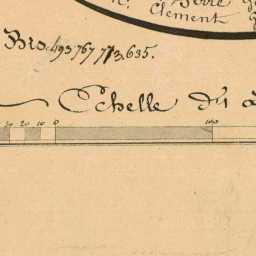 Clement
Bro. 493 767 773.635.
Echelle du
20 10 0 100